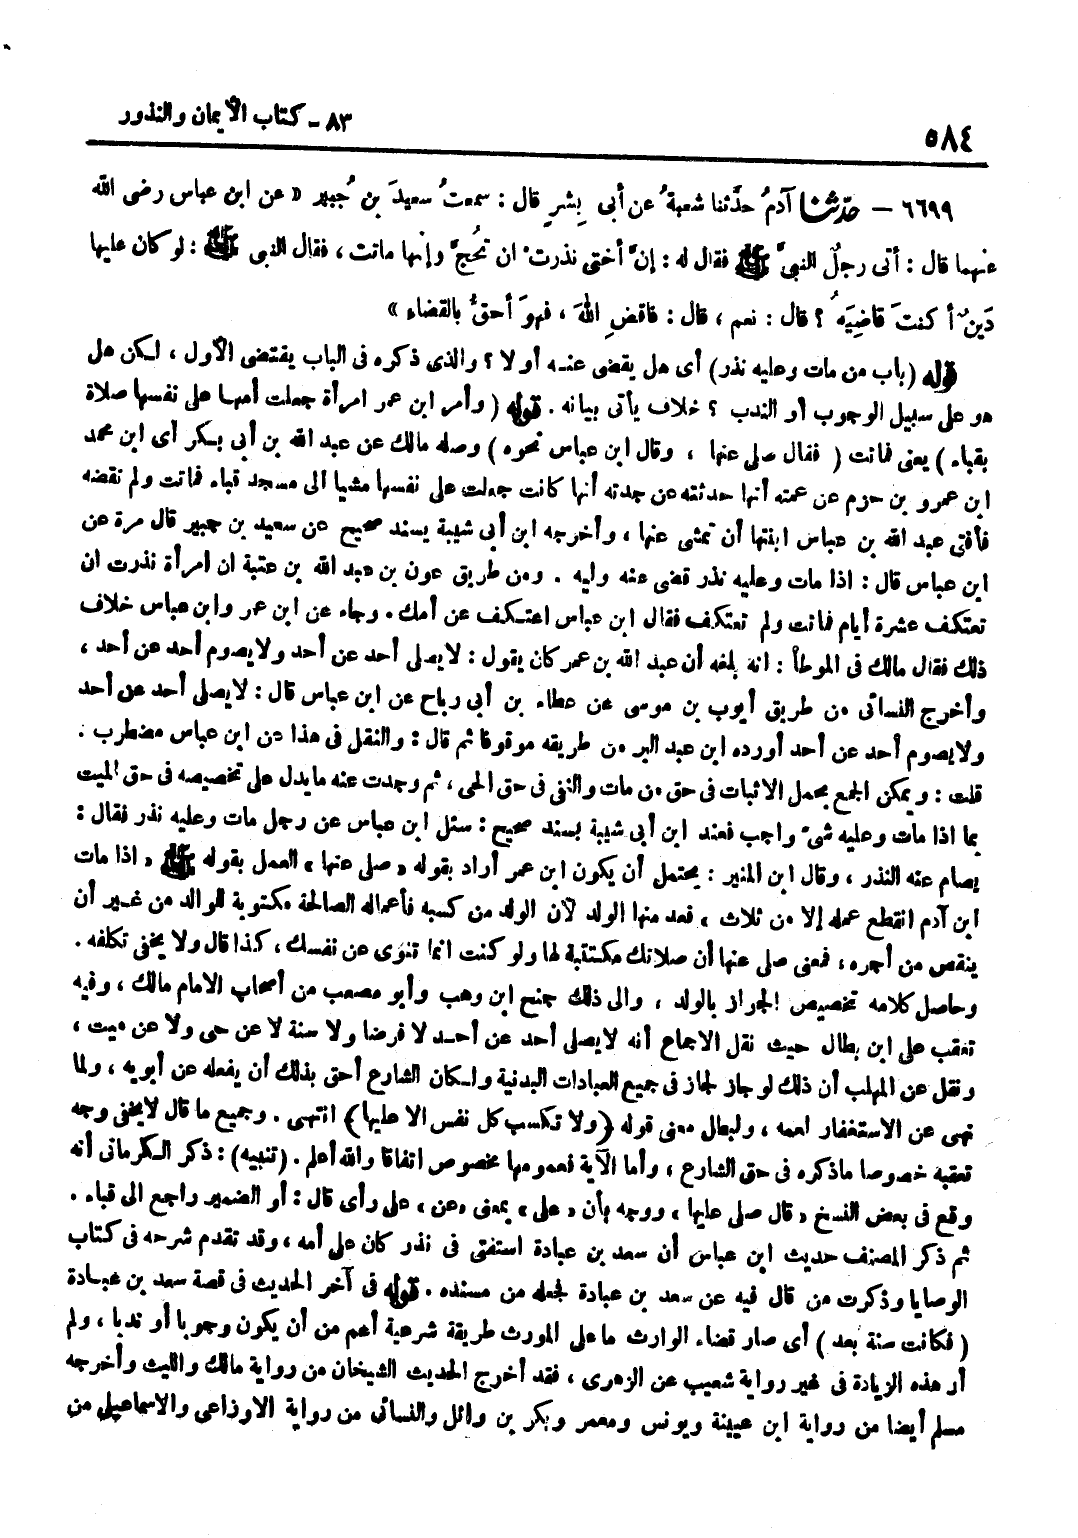 ٥٨٤
٨٣ - كتاب الأيمان والنذور
٦٦٩٩ - حدثنا آدمُ حدَّثنا شعبةُ عن أبى بِشرٍ قال : سمعتُ سعيدَ بن جُبير « عن ابن عباس رضى الله
عنهما قال : أتى رجلٌ النبىَّ ﷺ فقال له : إنَّ أختى نذرتْ ان تحُجَّ وإنها ماتت ، فقال النبى ﷺ : لو كان عليها
دَينٌ أ كنتَ قاضِيَهُ ؟ قال : نعم ، قال : فاقضِ اللهَ ، فهوَ أحقُّ بالقضاء »
قوله (باب من مات وعليه نذر) أى هل يقضى عنه أو لا ؟ والذى ذكره فى الباب يقتضى الأول ، لكن هل
هو على سبيل الوجوب أو الندب ؟ خلاف يأتى بيانه . قوله ( وأمر ابن عمر امرأة جعلت أمها على نفسها صلاة
بقباء ) يعنى فماتت ( فقال صلى عنها ، وقال ابن عباس نحوه ) وصله مالك عن عبد الله بن أبى بكر أى ابن محمد
ابن عمرو بن حزم عن عمته أنها حدثته عن جدته أنها كانت جعلت على نفسها مشيا الى مسجد قباء فماتت ولم تقضه
فأفتى عبد الله بن عباس ابنتها أن تمشى عنها ، وأخرجه ابن أبى شيبة بسند صحيح عن سعيد بن جبير قال مرة عن
ابن عباس قال : اذا مات وعليه نذر قضى عنه وليه . ومن طريق عون بن عبد الله بن عتبة ان امرأة نذرت ان
تعتكف عشرة أيام فماتت ولم تعتكف فقال ابن عباس اعتكف عن أمك . وجاء عن ابن عمر وابن عباس خلاف
ذلك فقال مالك فى الموطأ : انه بلغه أن عبد الله بن عمر كان يقول : لا يصلى أحد عن أحد ولا يصوم أحد عن أحد ،
وأخرج النسائى من طريق أيوب بن موسى عن عطاء بن أبى رباح عن ابن عباس قال : لا يصلى أحد عن أحد
ولا يصوم أحد عن أحد أورده ابن عبد البر من طريقه موقوفا ثم قال : والنقل فى هذا عن ابن عباس مضطرب .
قلت : ويمكن الجمع بحمل الاثبات فى حق من مات والنفى فى حق الحى ، ثم وجدت عنه ما يدل على تخصيصه فى حق الميت
بما اذا مات وعليه شىء واجب فعند ابن أبى شيبة بسند صحيح : سئل ابن عباس عن رجل مات وعليه نذر فقال :
يصام عنه النذر ، وقال ابن المنير : يحتمل أن يكون ابن عمر أراد بقوله « صلى عنها » العمل بقوله ﷺ « اذا مات
ابن آدم انقطع عمله إلا من ثلاث » فعد منها الولد لأن الولد من كسبه فأعماله الصالحة مكتوبة للوالد من غير أن
ينقص من أجره ، فمعنى صلى عنها أن صلاتك مكتتبة لها ولو كنت انما تنوى عن نفسك ، كذا قال ولا يخفى تكلفه .
وحاصل كلامه تخصيص الجواز بالولد ، والى ذلك جنح ابن وهب وأبو مصعب من أصحاب الامام مالك ، وفيه
تعقب على ابن بطال حيث نقل الاجماع أنه لا يصلى أحد عن أحد لا فرضا ولا سنة لا عن حى ولا عن ميت ،
ونقل عن المهلب أن ذلك لو جاز لجاز فى جميع العبادات البدنية ولكان الشارع أحق بذلك أن يفعله عن أبويه ، ولما
نهى عن الاستغفار لعمه ، ولبطل معنى قوله ﴿ولا تكسب كل نفس الا عليها﴾ انتهى . وجميع ما قال لا يخفى وجه
تعقبه خصوصا ما ذكره فى حق الشارع ، وأما الآية فعمومها مخصوص اتفاقا والله أعلم . (تنبيه) : ذكر الكرمانى أنه
وقع فى بعض النسخ « قال صلى عليها » ووجه بأن « على » بمعنى « عن » على رأى قال : أو الضمير راجع الى قباء .
ثم ذكر المصنف حديث ابن عباس أن سعد بن عبادة استفتى فى نذر كان على أمه ، وقد تقدم شرحه فى كتاب
الوصايا وذكرت من قال فيه عن سعد بن عبادة لجعله من مسنده . قوله فى آخر الحديث فى قصة سعد بن عبادة
( فكانت سنة بعد ) أى صار قضاء الوارث ما على المورث طريقة شرعية أعم من أن يكون وجوبا أو ندبا ، ولم
أر هذه الزيادة فى غير رواية شعيب عن الزهرى ، فقد أخرج الحديث الشيخان من رواية مالك والليث وأخرجه
مسلم أيضا من رواية ابن عيينة ويونس ومعمر وبكر بن وائل والنسائى من رواية الاوزاعى والاسماعيلى من